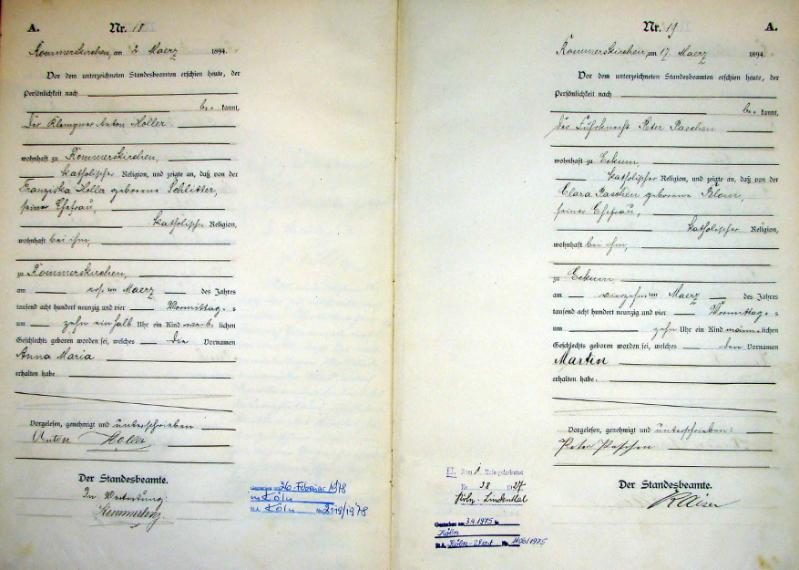 A. Nr. 18
Rommerskirchen, am 2 Maerz 1894.
Vor dem unterzeichneten Standesbeamten erschien heute, der
Persönlichkeit nach
be= kannt,
Der Klempner Anton Holler
wohnhaft zu Rommerskirchen,
katholischer Religion, und zeigte an, daß von der
Franziska Holler geborene Schlitter,
seiner Ehefrau,
katholischer Religion,
wohnhaft bei ihm,
zu Rommerskirchen,
am ersten Maerz des Jahres
tausend acht hundert neunzig und vier Vormittags
um zehn einhalb Uhr ein Kind weiblichen
Geschlechts geboren worden sei, welches die Vornamen
Anna Maria
erhalten habe.
Vorgelesen, genehmigt und unterschrieben
Anton Holler
Der Standesbeamte.
In Vertretung:
26. Februar 1978
in Köln
Köln
Nr. 19 A.
Rommerskirchen, am 17 Maerz 1894.
Vor dem unterzeichneten Standesbeamten erschien heute, der
Persönlichkeit nach
be= kannt,
der Peter Paschen
wohnhaft zu Eckum,
katholischer Religion, und zeigte an, daß von der
Clara Paschen geborene
seiner Ehefrau,
katholischer Religion,
wohnhaft bei ihm,
zu Eckum
am vierzehnten Maerz des Jahres
tausend acht hundert neunzig und vier Vormittags
um zehn Uhr ein Kind männlichen
Geschlechts geboren worden sei, welches den Vornamen
Martin
erhalten habe.
Vorgelesen, genehmigt und unterschrieben:
Peter Paschen
Der Standesbeamte.
Köln-Lindenthal
3.4.1975
Köln